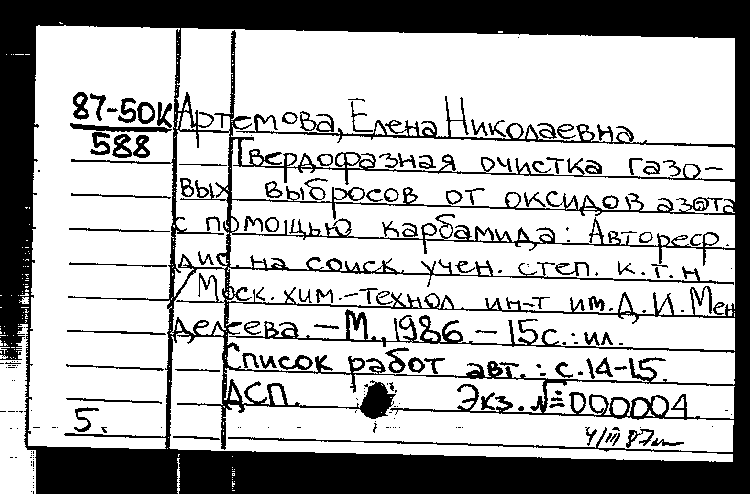 87-50К Артемова, Елена Николаевна.
588 Твердофазная очистка газо-
вых выбросов от оксидов азота
с помощью карбамида: Автореф.
дис. на соиск. учен. степ. к.т.н
/Моск. хим.-технол ин-т им. Д. И. Мен
делеева. – М., 1986. – 15с.: ил.
Список работ авт.: с.14-15.
ДСП. Экз. № 000004.
5.
4/III 87